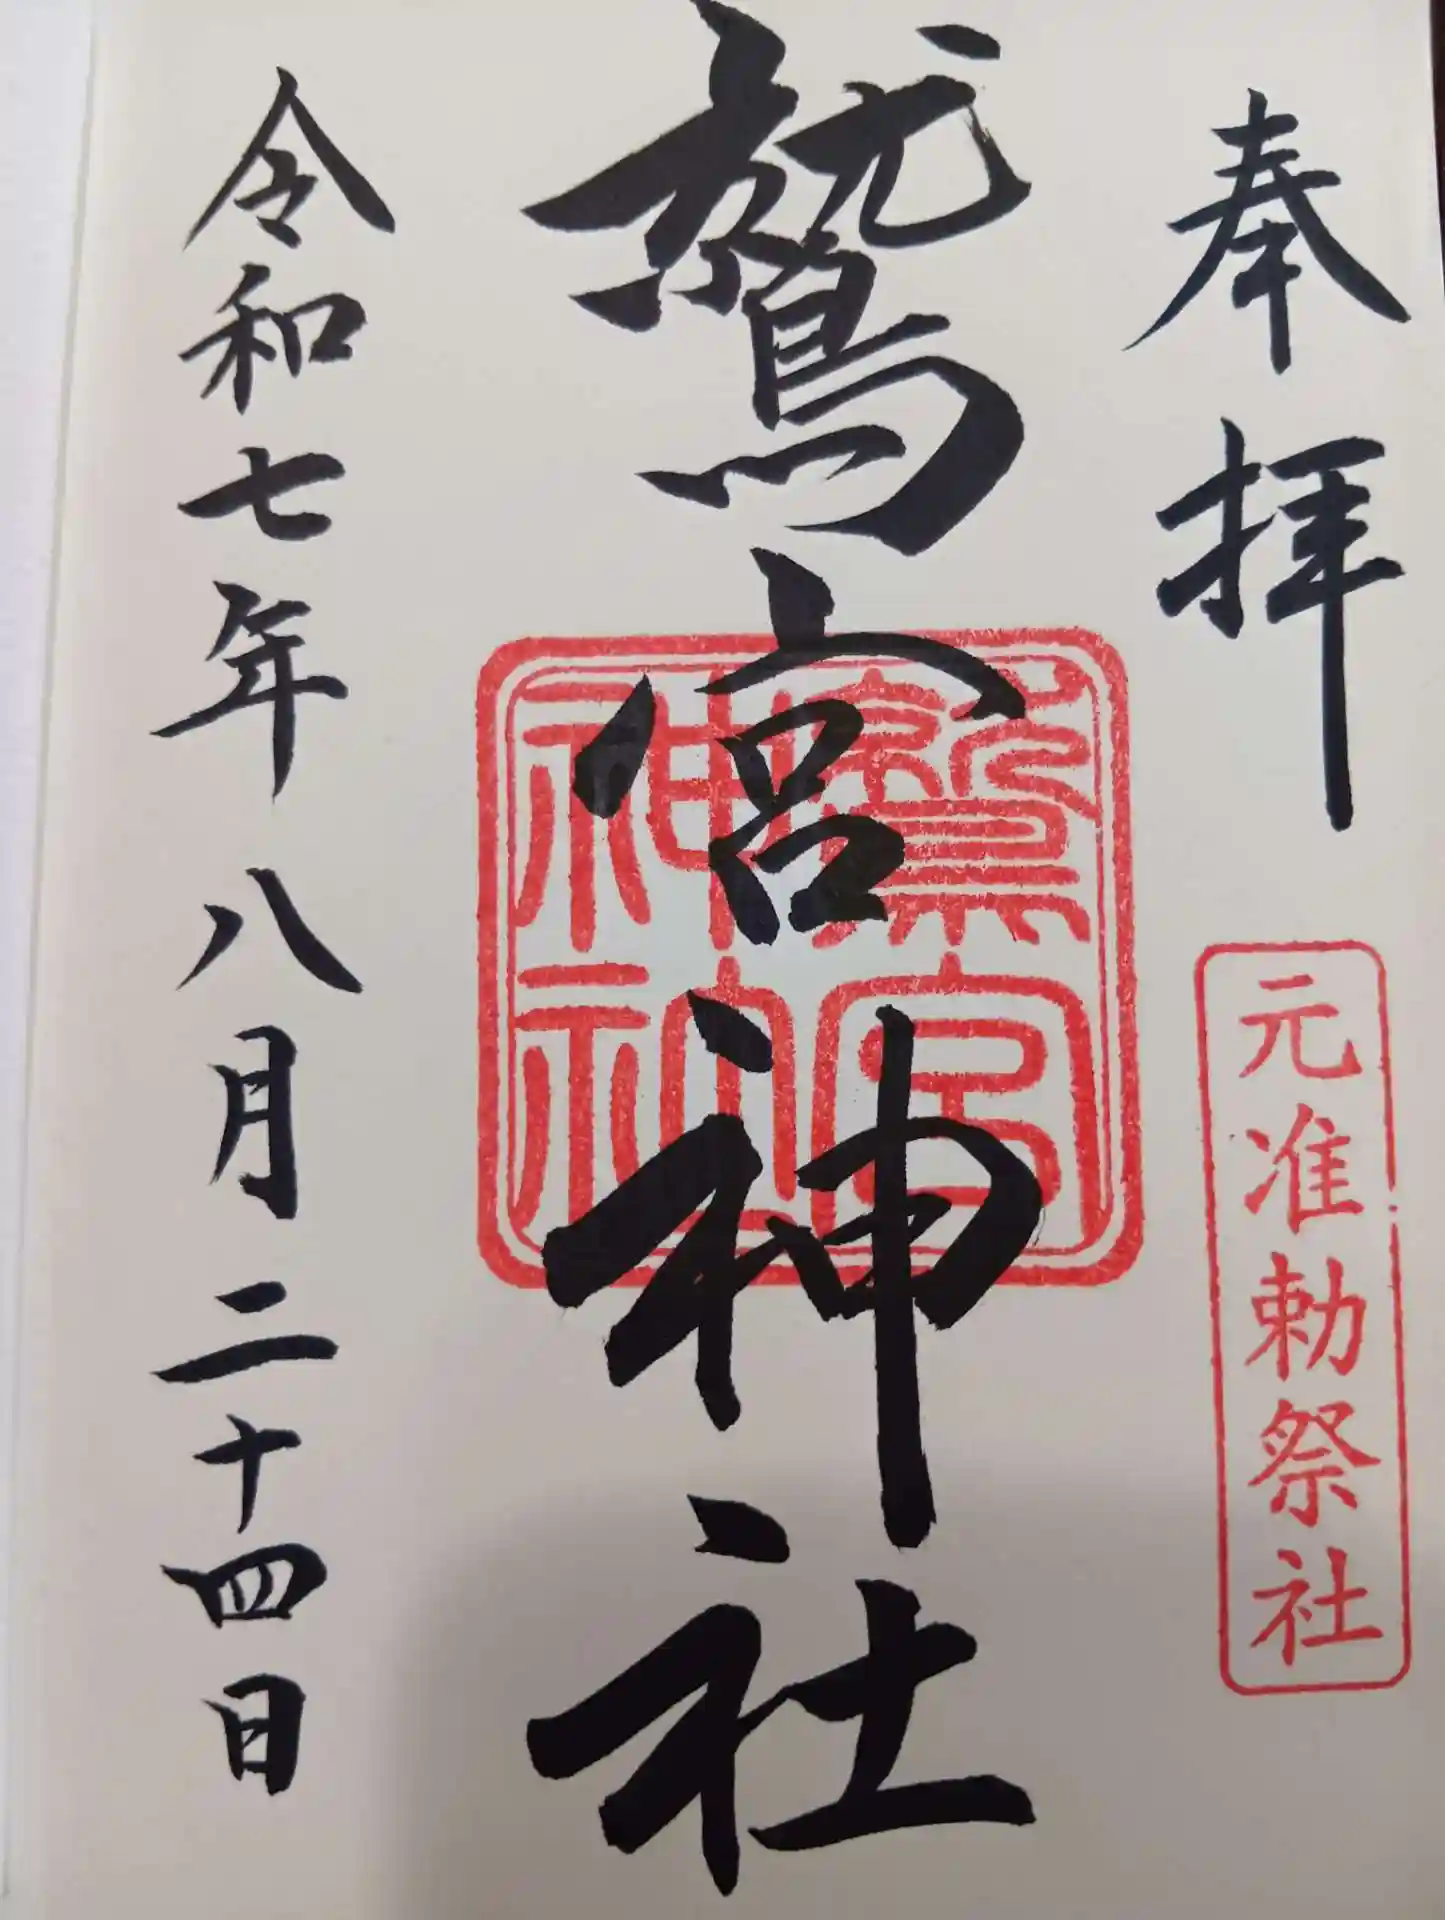 奉拝
元准勅祭社
鷲宮神社
鷲宮
神社
令和七年八月二十四日